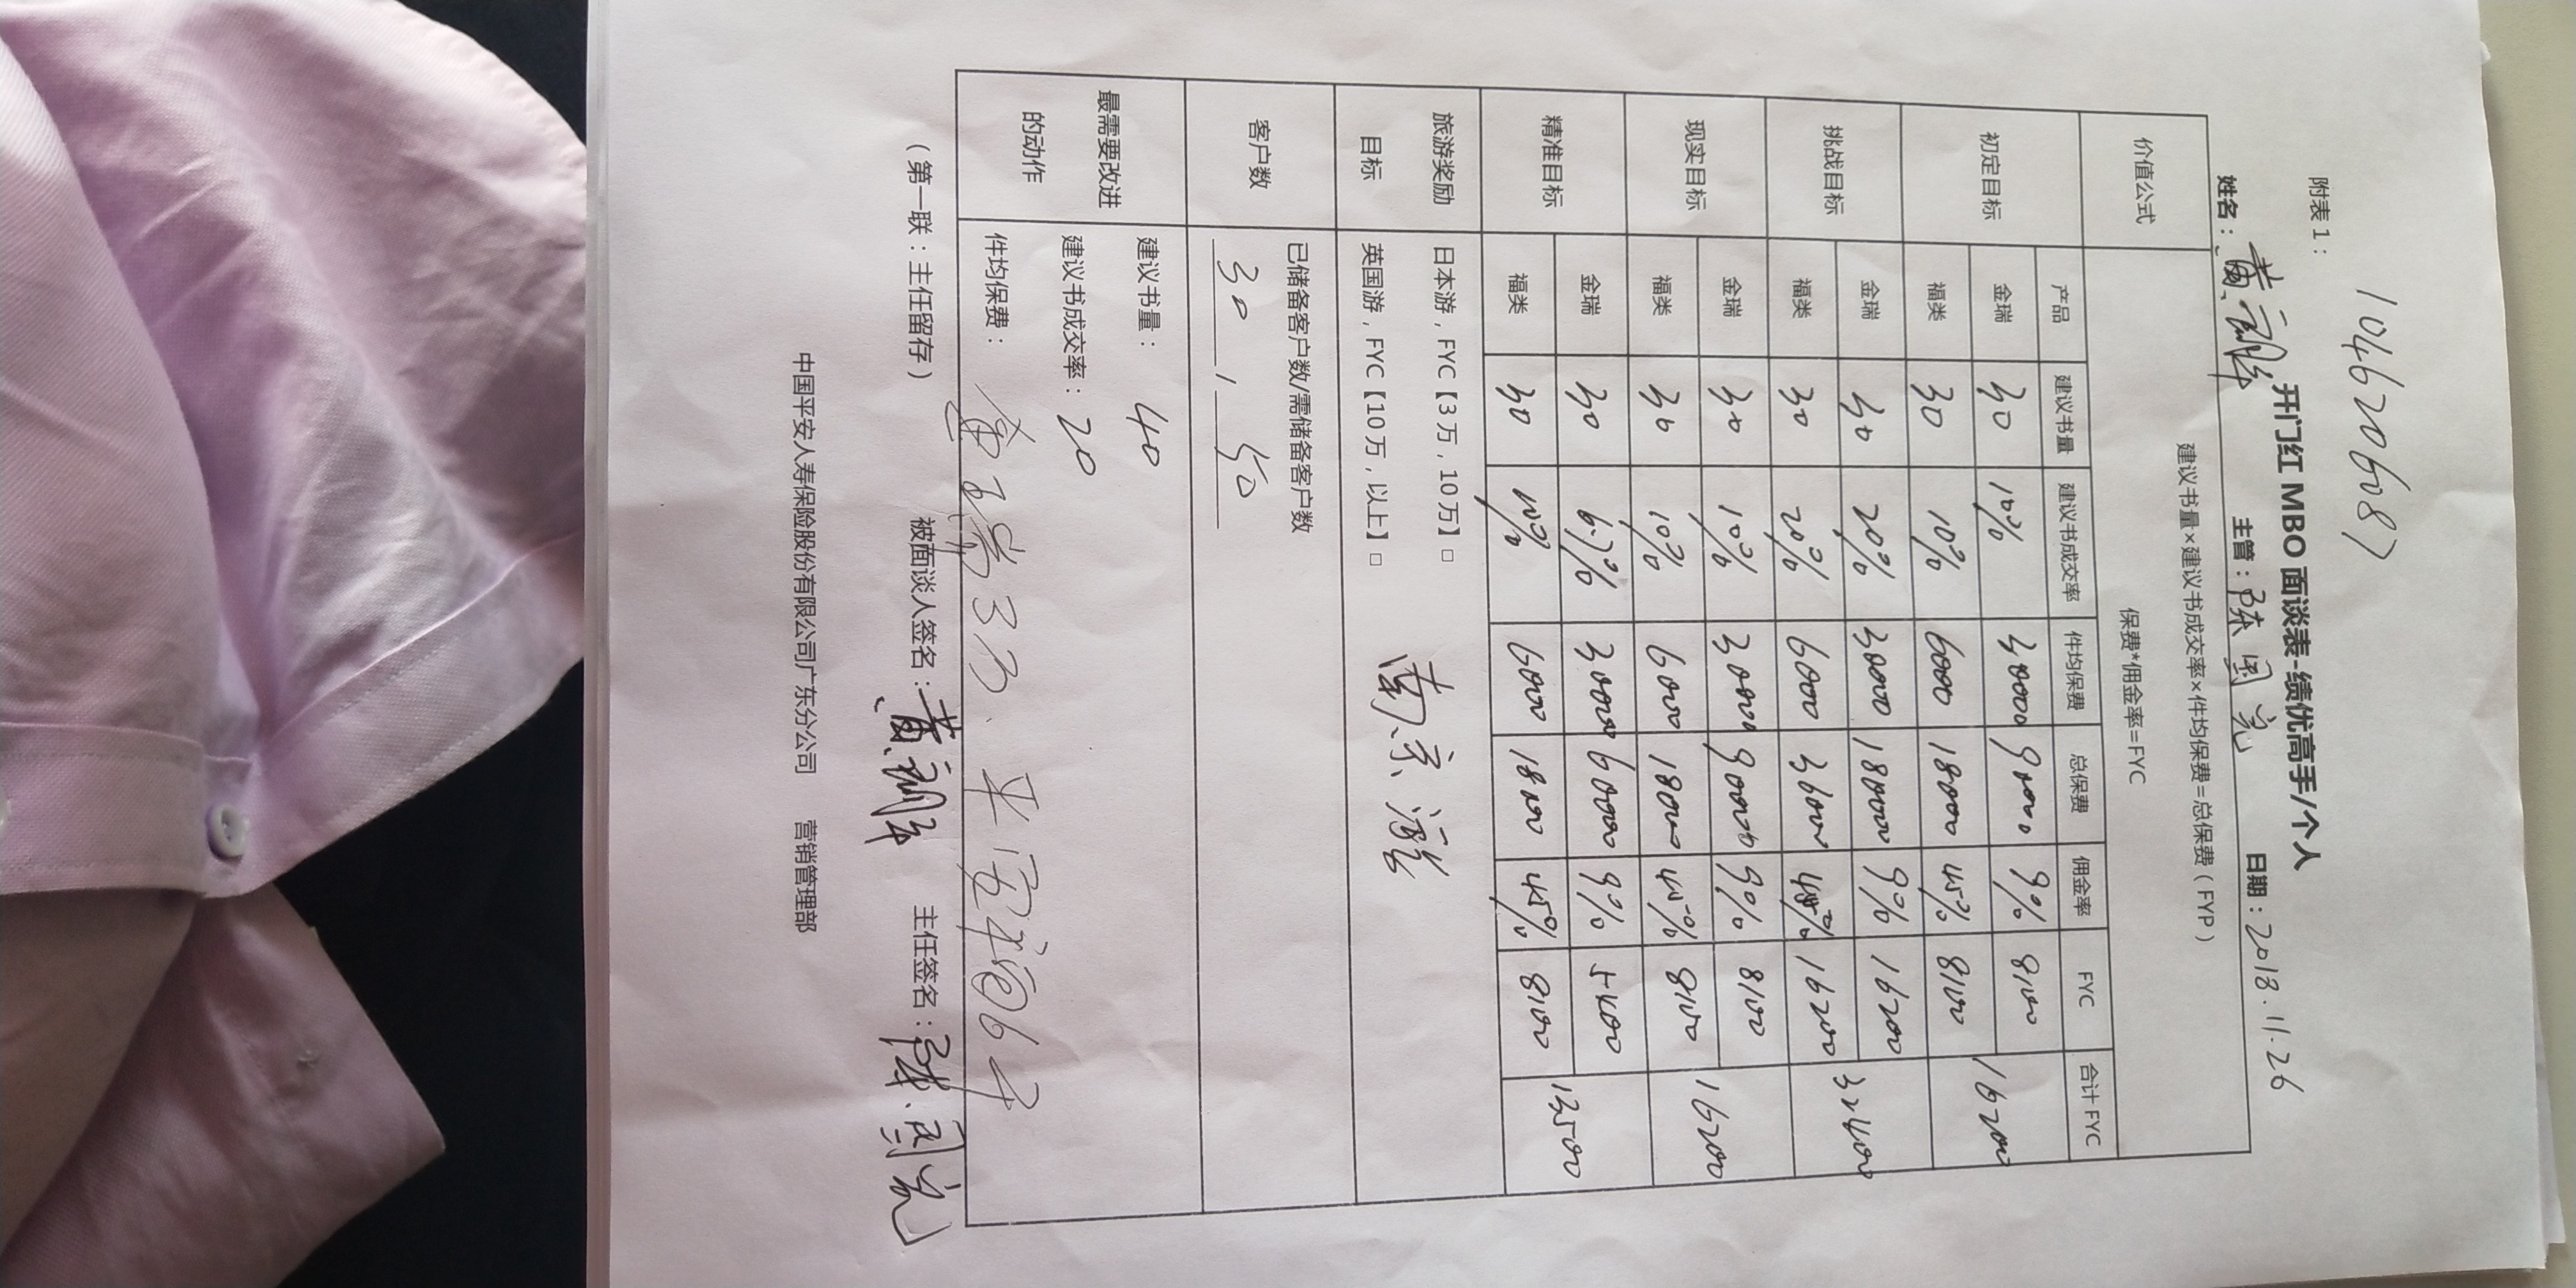 1046206087
附表1：
开门红 MBO 面谈表-绩优高手/个人
姓名： 主管：陈国亮 日期：2018.11.26
价值公式 建议书量×建议书成交率×件均保费=总保费（FYP）
保费*佣金率=FYC
产品 建议书量 建议书成交率 件均保费 总保费 佣金率 FYC 合计 FYC
初定目标 金瑞 30 10% 30000 90000 9% 8100 16200
福类 30 10% 6000 18000 45% 8100
挑战目标 金瑞 30 20% 30000 180000 9% 16200 32400
福类 30 20% 6000 36000 45% 16200
现实目标 金瑞 30 10% 30000 90000 9% 8100 16200
福类 30 10% 6000 18000 45% 8100
精准目标 金瑞 30 6.7% 30000 60000 9% 5400 13500
福类 30 10% 6000 18000 45% 8100
旅游奖励目标 日本游，FYC【3 万，10 万】□
英国游，FYC【10 万，以上】□
南京游
客户数 已储备客户数/需储备客户数
30 / 50
最需要改进的动作 建议书量： 40
建议书成交率： 20
件均保费： 金瑞3万、平安福6千
（第一联：主任留存） 被面谈人签名： 主任签名：陈国亮
中国平安人寿保险股份有限公司广东分公司 营销管理部